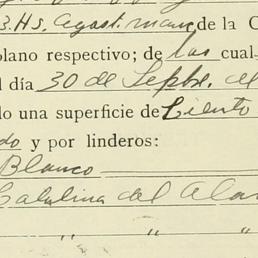 3. Hs. Agost. marc de la C
plano respectivo; de las cual-
l día 30 de Sepbre. el
do una superficie de Ciento
do y por linderos:
Blanco
Catalina del Alar
" " "